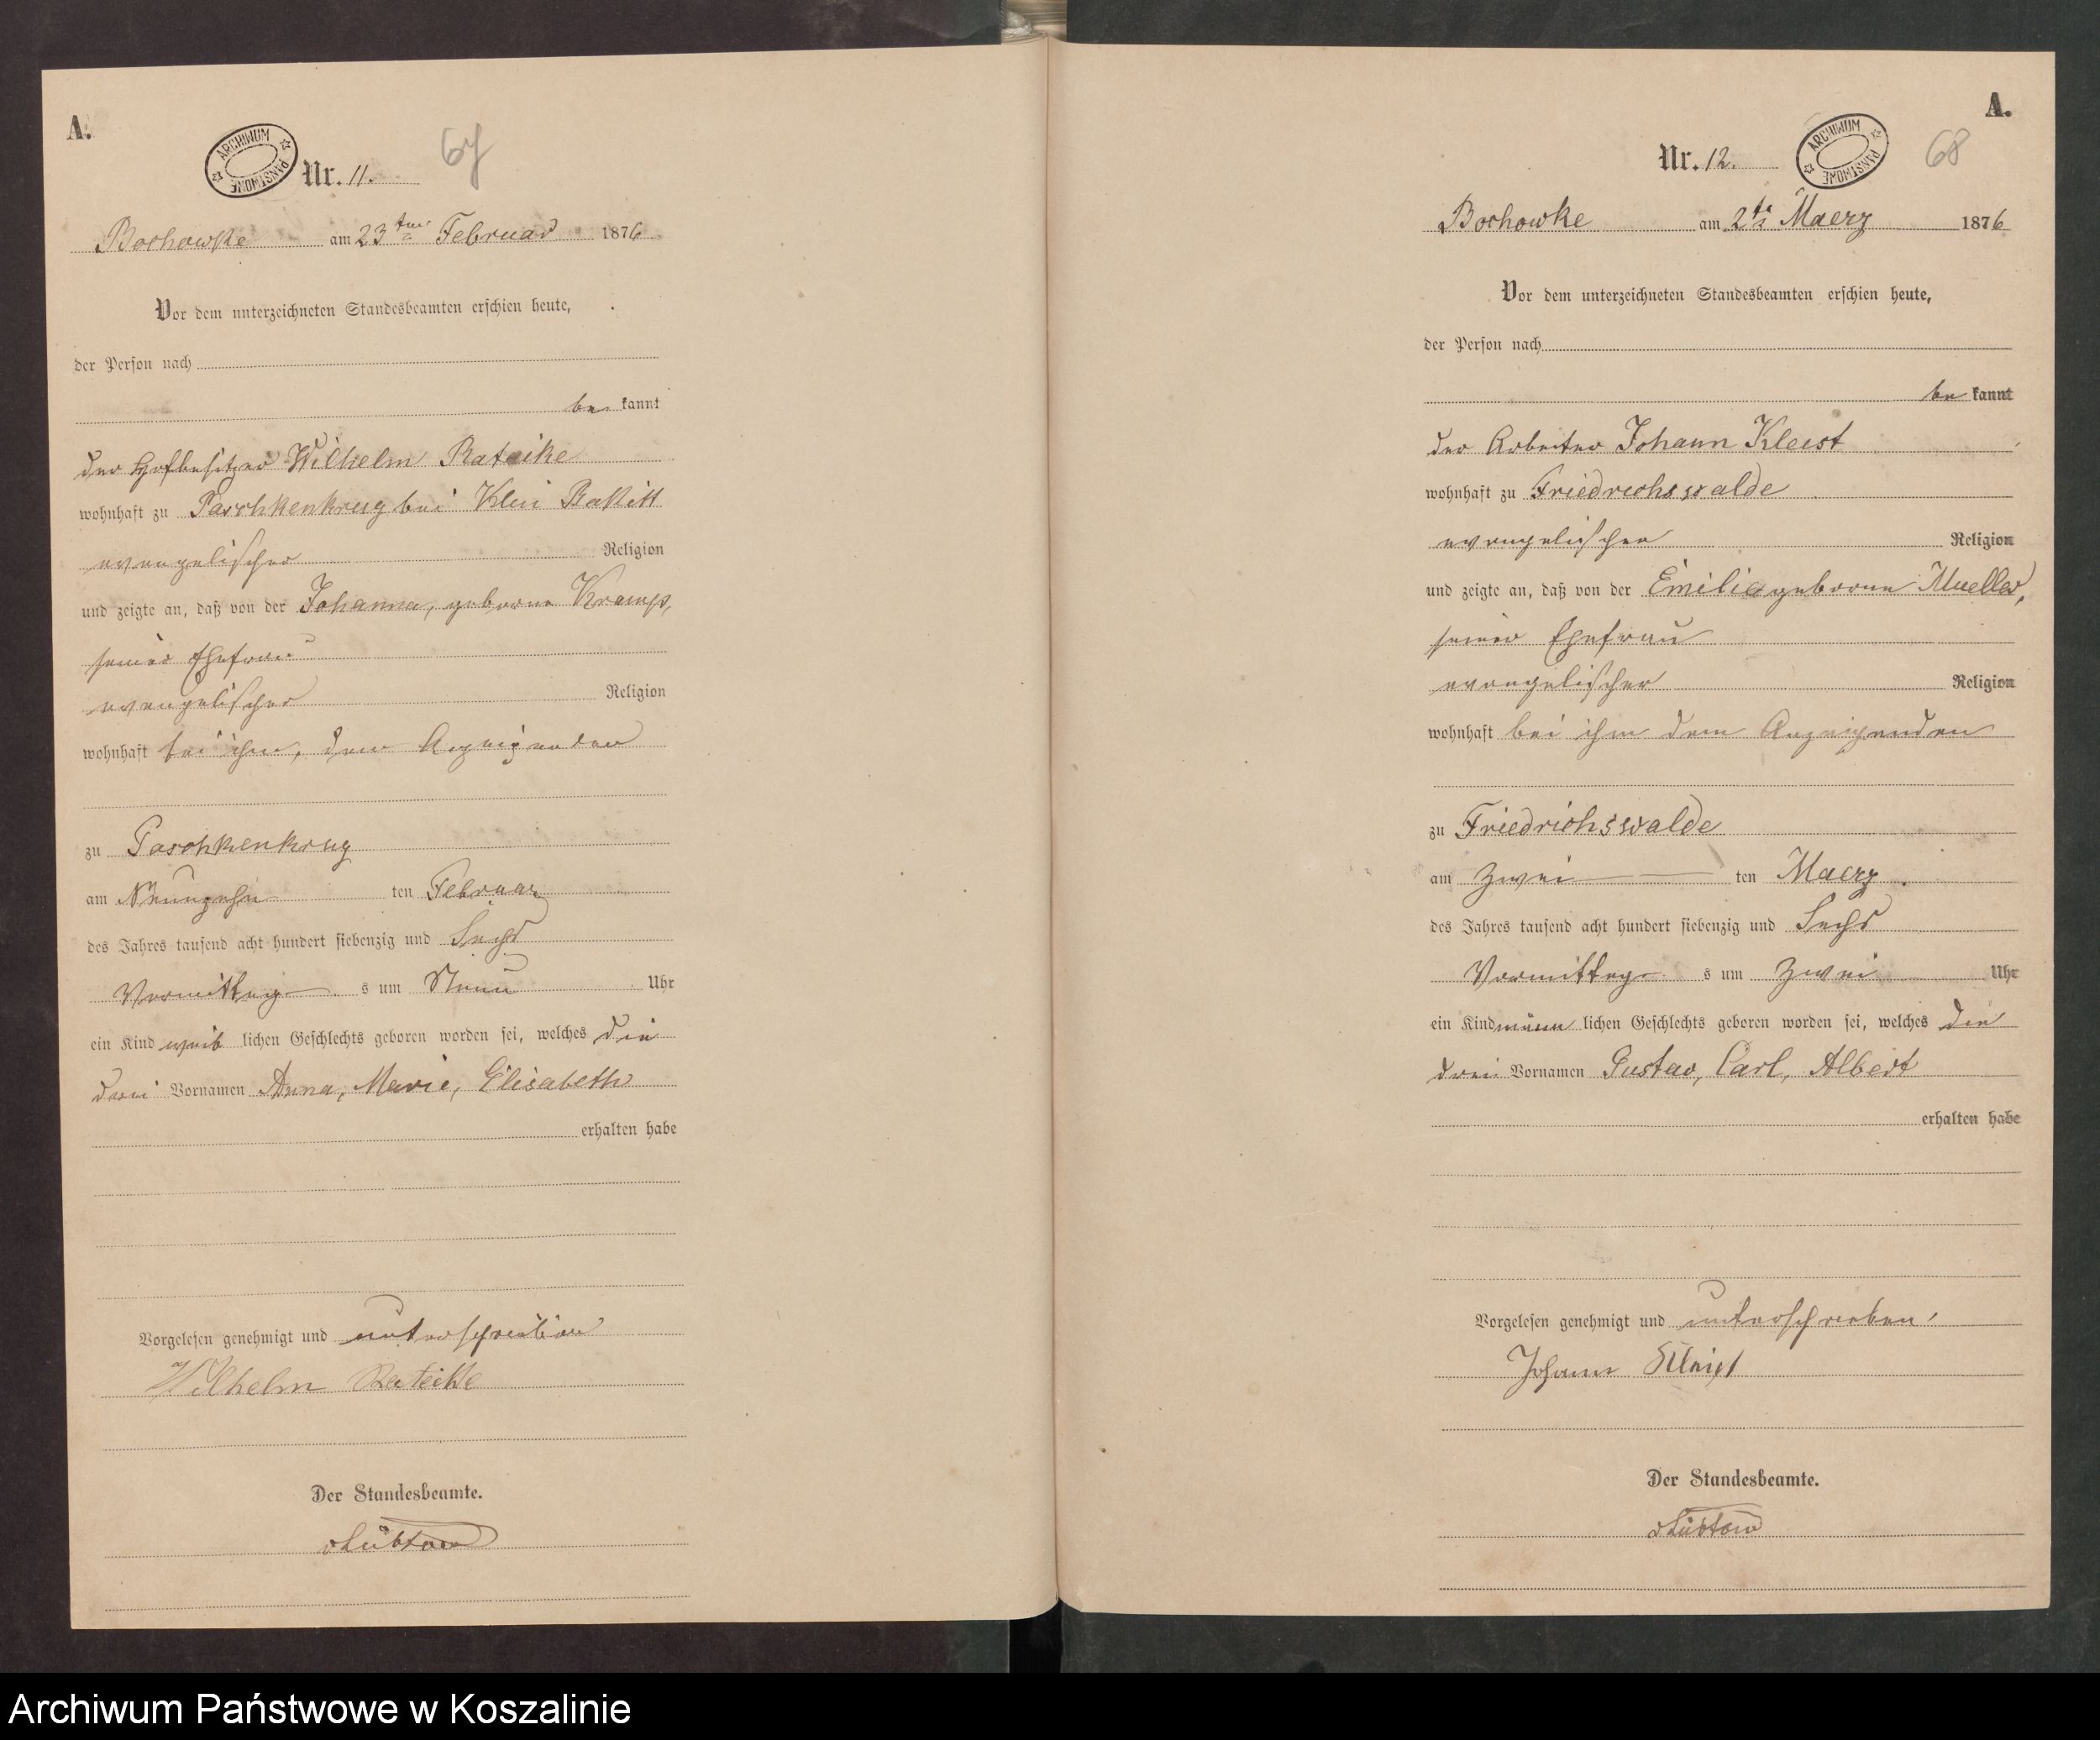 A.
ARCHIWUM PAŃSTWOWE
Nr. 11.
67
Bochowke am 23ten Februar 1876
Vor dem unterzeichneten Standesbeamten erschien heute,
der Person nach
be kannt
der Hofbesitzer Wilhelm Rateike
wohnhaft zu Paschkenkrug bei Klein Rakitt
evangelischer Religion
und zeigte an, daß von der Johanna, geborne Kramp,
seiner Ehefrau
evangelischer Religion
wohnhaft bei ihm, dem Anzeigenden
zu Paschkenkrug
am Neunzehn ten Februar
des Jahres tausend acht hundert siebenzig und Sechs
Vormittag s um Neun Uhr
ein Kind weib lichen Geschlechts geboren worden sei, welches die
drei Vornamen Anna, Marie, Elisabeth
erhalten habe
Vorgelesen genehmigt und unterschrieben
Wilhelm Rateike
Der Standesbeamte.
vLübtow
A.
Nr. 12.
ARCHIWUM PAŃSTWOWE
68
Bochowke am 2te Maerz 1876
Vor dem unterzeichneten Standesbeamten erschien heute,
der Person nach
be kannt
der Arbeiter Johann Kleist
wohnhaft zu Friedrichswalde
evangelischer Religion
und zeigte an, daß von der Emilie geborne Mueller,
seiner Ehefrau
evangelischer Religion
wohnhaft bei ihm dem Anzeigenden
zu Friedrichswalde
am Zwei ten Maerz
des Jahres tausend acht hundert siebenzig und Sechs
Vormittag s um Zwei Uhr
ein Kind männ lichen Geschlechts geboren worden sei, welches die
drei Vornamen Gustav, Carl, Albert
erhalten habe
Vorgelesen genehmigt und unterschrieben,
Johann Kleist
Der Standesbeamte.
vLübtow
Archiwum Państwowe w Koszalinie